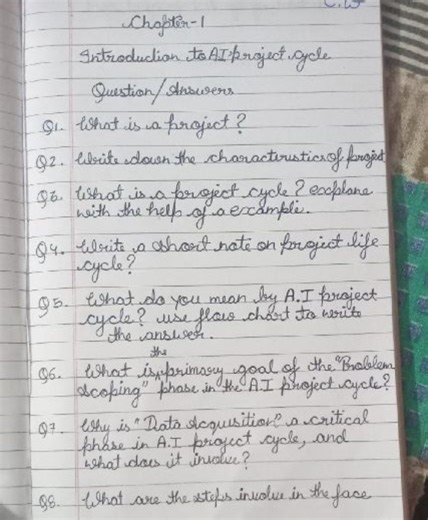 C.W
Chapter-1
Introduction to AI project cycle
Question/Answers
Q1. What is a project?
Q2. Write down the characteristics of project
Q3. What is a project cycle? explane
with the help of a example.
Q4. Write a short note on project life
cycle?
Q5. What do you mean by A.I project
cycle? use flow chart to write
the answer.
the
Q6. What is primary goal of the "Problem
scoping" phase in the A.I project cycle?
Q7. Why is "Data Acquisition" a critical
phase in A.I project cycle, and
what does it involve?
Q8. What are the steps involve in the face